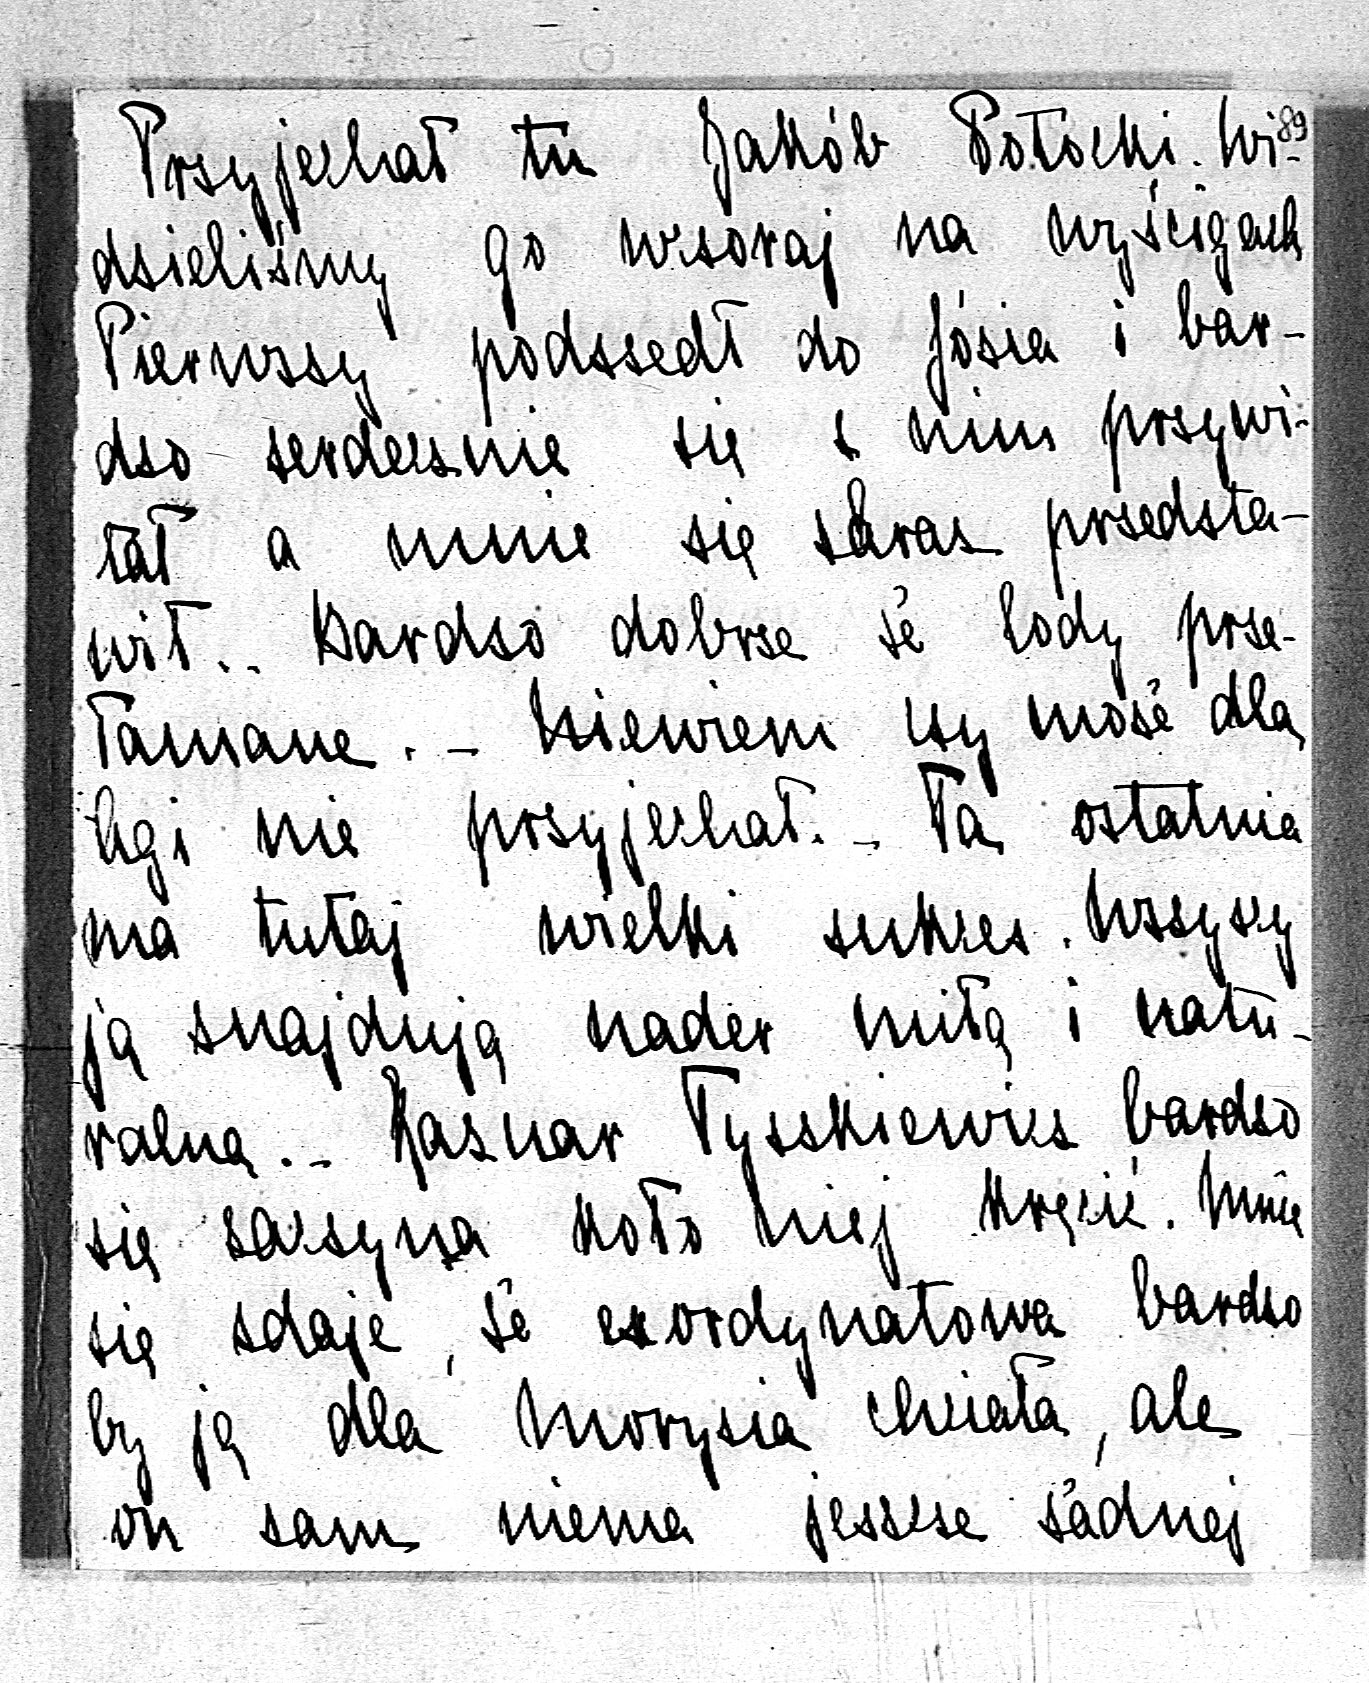 89
Przyjechał tu Jakób Potocki. Wi-
dzieliśmy go wczoraj na wyścigach
Pierwszy podszedł do Józia i bar-
dzo serdecznie się z nim przywi-
tał a mnie się zaraz przedsta-
wił.. Bardzo dobrze że lody prze-
łamane. – Niewiem czy może dla
Ugi nie przyjechał. – Ta ostatnia
ma tutaj wielki sukces. Wszyscy
ją znajdują nader miłą i natu-
ralną. – Tyszkiewicz bardzo
się zaczyna koło niej kręcić. Mnie
się zdaje, że exordynatowa bardzo
by ją dla Morysia chciała, ale
on sam niema jeszcze żadnej